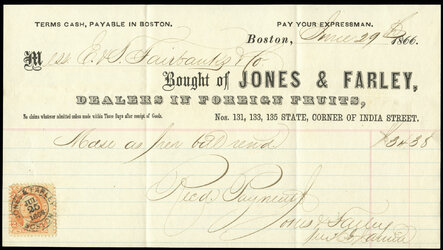 TERMS CASH, PAYABLE IN BOSTON. PAY YOUR EXPRESSMAN.
Boston, June 29th 1866.
Mess E. & T. Fairbanks & Co
Bought of JONES & FARLEY,
DEALERS IN FOREIGN FRUITS,
No claims whatever admitted unless made within Three Days after receipt of Goods. Nos. 131, 133, 135 STATE, CORNER OF INDIA STREET.
Mdse as per bill rend
Recd Payment
Jones & Farley
JONES & FARLEY
BOSTON